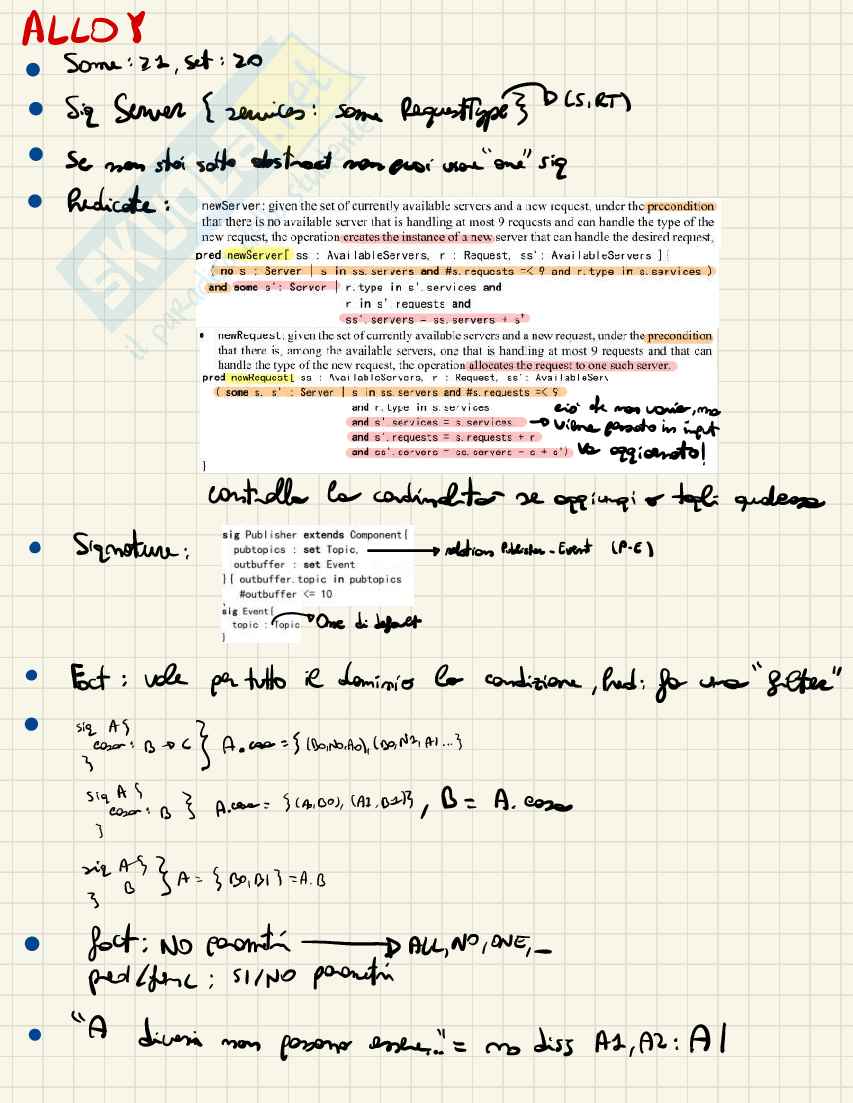 ALLOY
Some: ≥1, set: ≥0
Sig Server { services: some RequestType } → (S, RT)
Se non stai sotto abstract non puoi usare "one" sig
Predicate:
newServer: given the set of currently available servers and a new request, under the precondition
that there is no available server that is handling at most 9 requests and can handle the type of the
new request, the operation creates the instance of a new server that can handle the desired request,
pred newServer[ ss : AvailableServers, r : Request, ss': AvailableServers ]{
( no s : Server | s in ss.servers and #s.requests =< 9 and r.type in s.services )
and some s': Server | r.type in s'.services and
r in s'.requests and
ss'.servers = ss.servers + s'
• newRequest: given the set of currently available servers and a new request, under the precondition
that there is, among the available servers, one that is handling at most 9 requests and that can
handle the type of the new request, the operation allocates the request to one such server.
pred newRequest[ ss : AvailableServers, r : Request, ss': AvailableServ
( some s, s' : Server | s in ss.servers and #s.requests =< 9
and r.type in s.services
and s'.services = s.services → ciò che non varia, ma
viene passato in input
and s'.requests = s.requests + r
and ss'.servers = ss.servers - s + s') va aggiornato!
}
controlla la cardinalità se aggiungi o togli qualcosa
Signature:
sig Publisher extends Component{
pubtopics : set Topic, → relation Publisher - Event (P-E)
outbuffer : set Event
}{ outbuffer.topic in pubtopics
#outbuffer <= 10
sig Event{
topic : Topic → One di default
}
Fact: vale per tutto il dominio la condizione, Pred: fa una "filter"
sig A{
cosa: B → C } A.cosa = {(B0,N0,A0), (B0,N2,A1...}
}
sig A{
cosa: B } A.cosa = {(A,B0), (A1,B1)}, B = A.cosa
}
sig A{
B } A = {B0,B1} = A.B
}
fact: NO parametri → ALL, NO, ONE, _
pred/func: SI/NO parametri
"A diversi non possono essere..." = no disj A1, A2: A|
SKUOLA.net
il paradiso dello studente